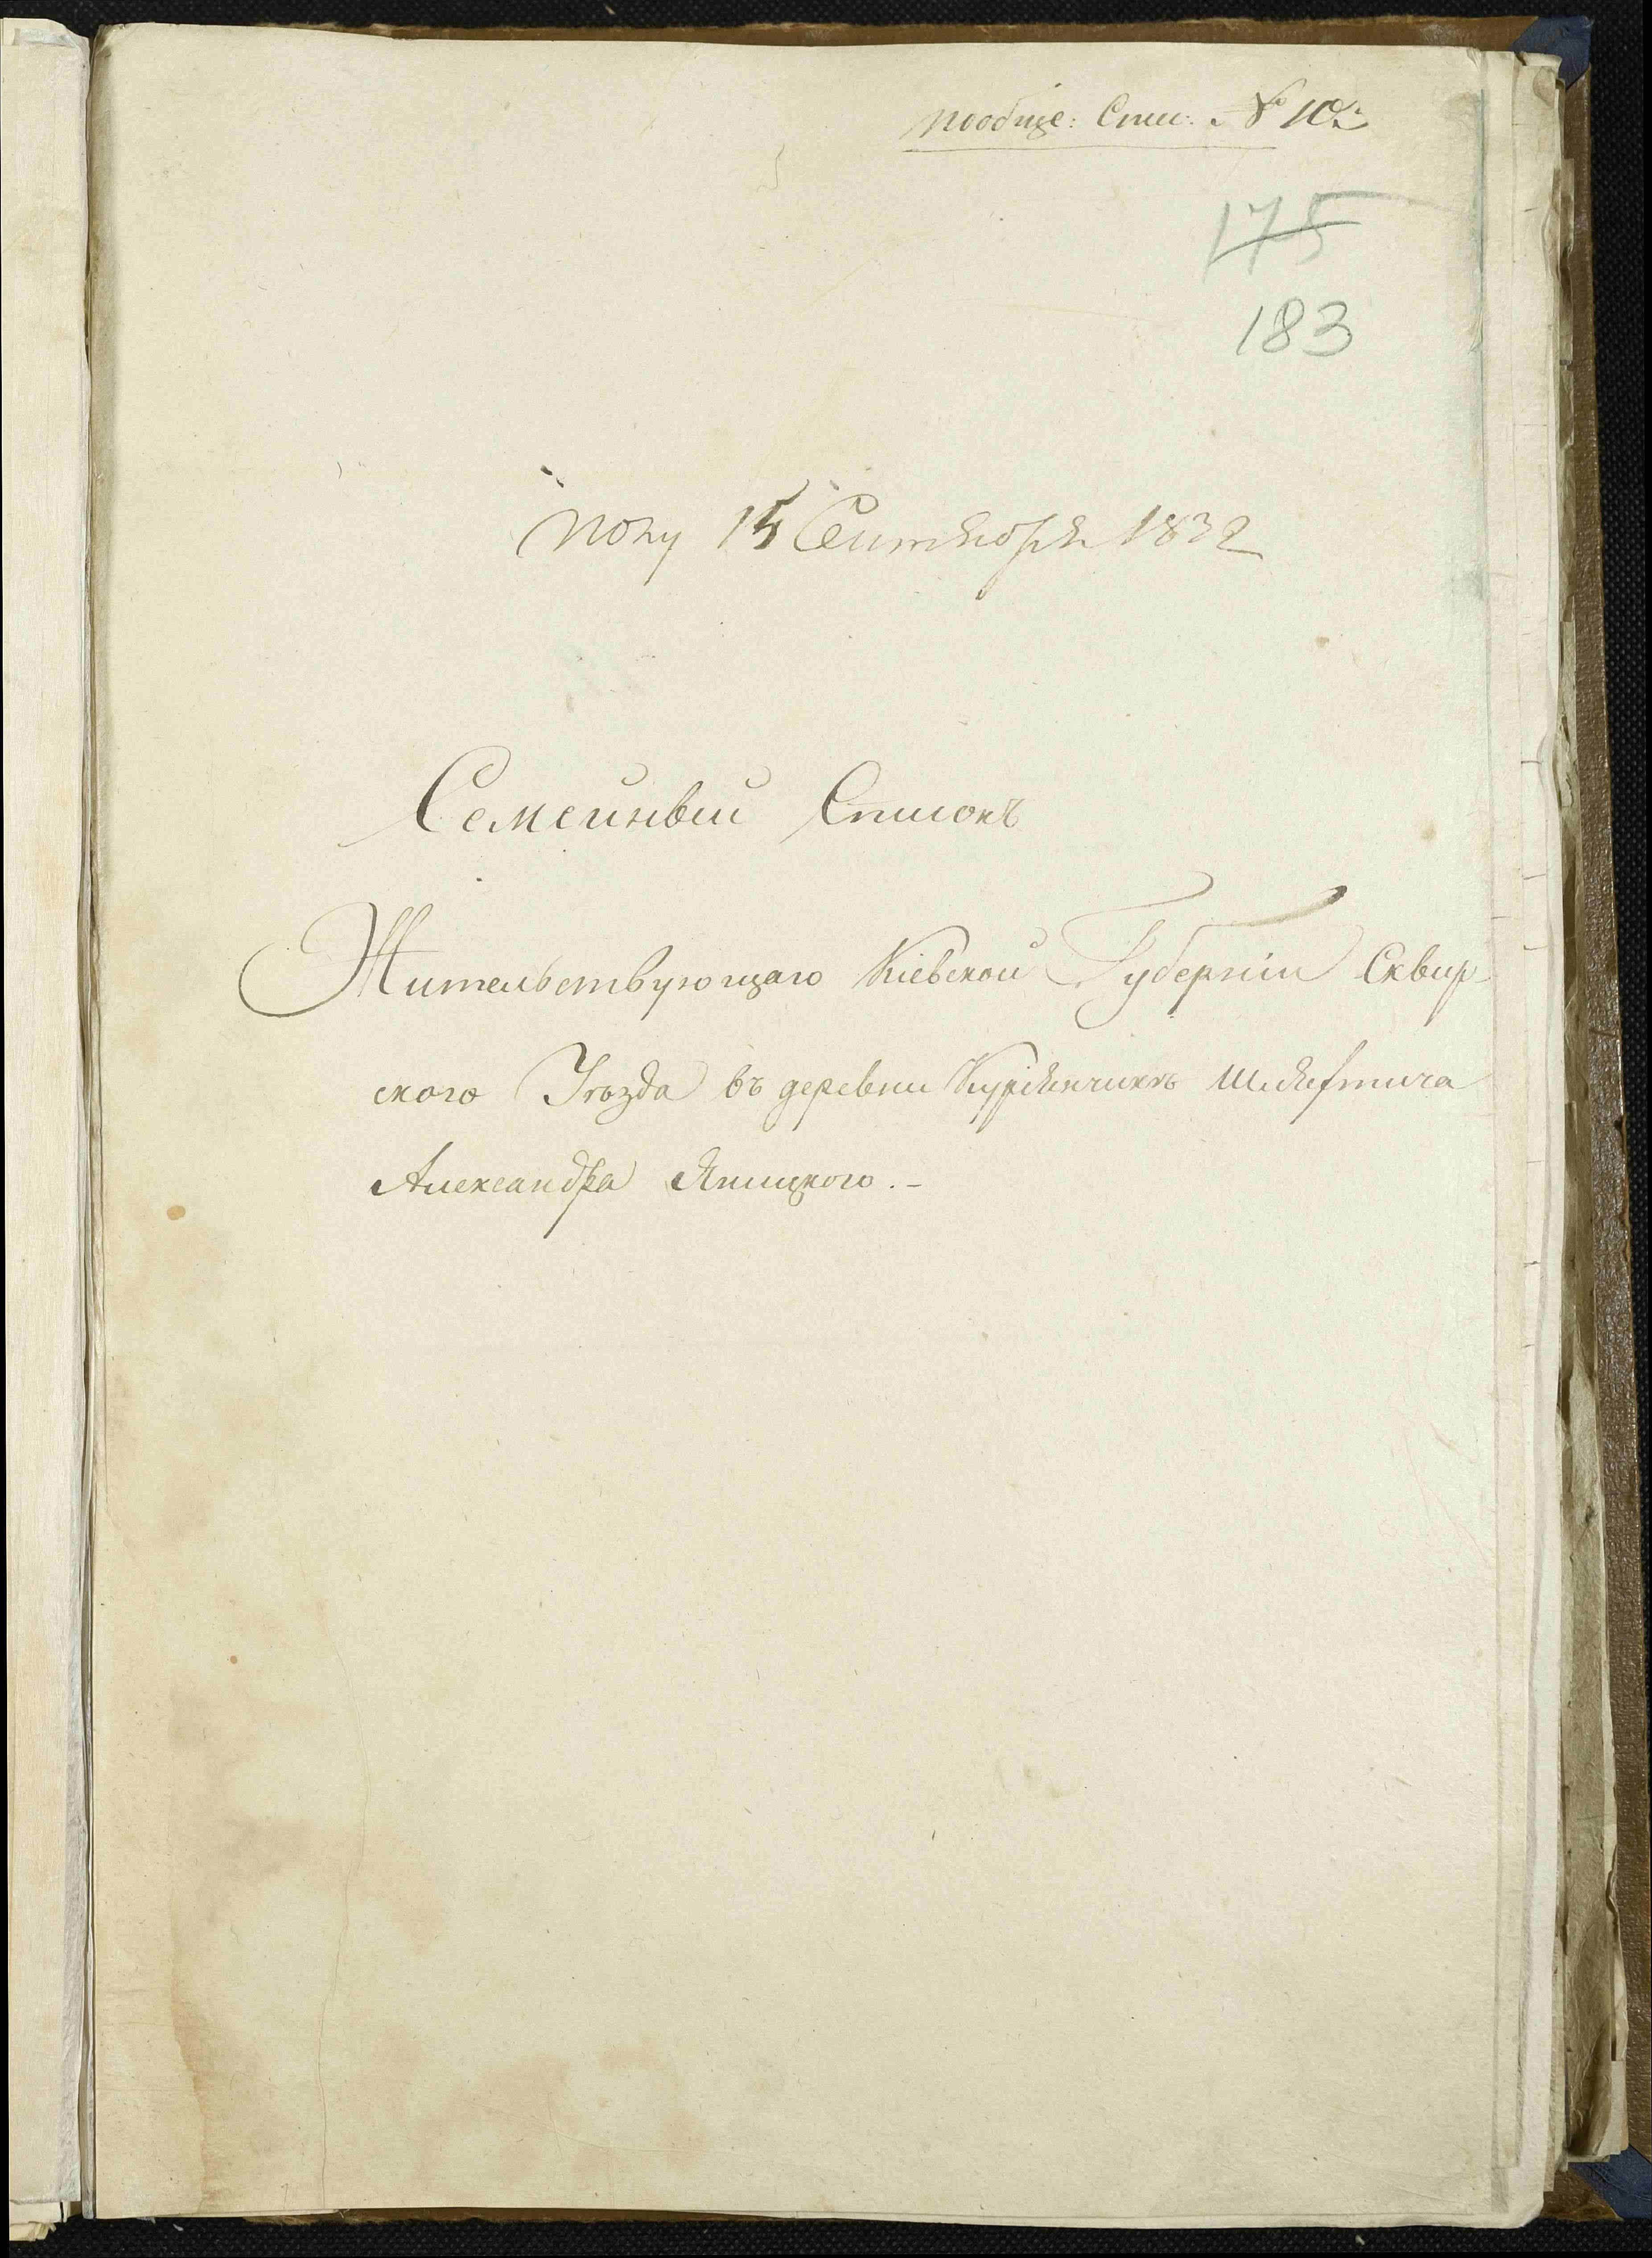 пообще: Спис: № 10й
175
183
Полу 15 Сентября 1832
Семейный Списокъ
Жительствующаго Кіевской Губерніи Сквир-
ского Уѣзда въ деревни Куріянчикъ Шляхтича
Александра Яницкого.-